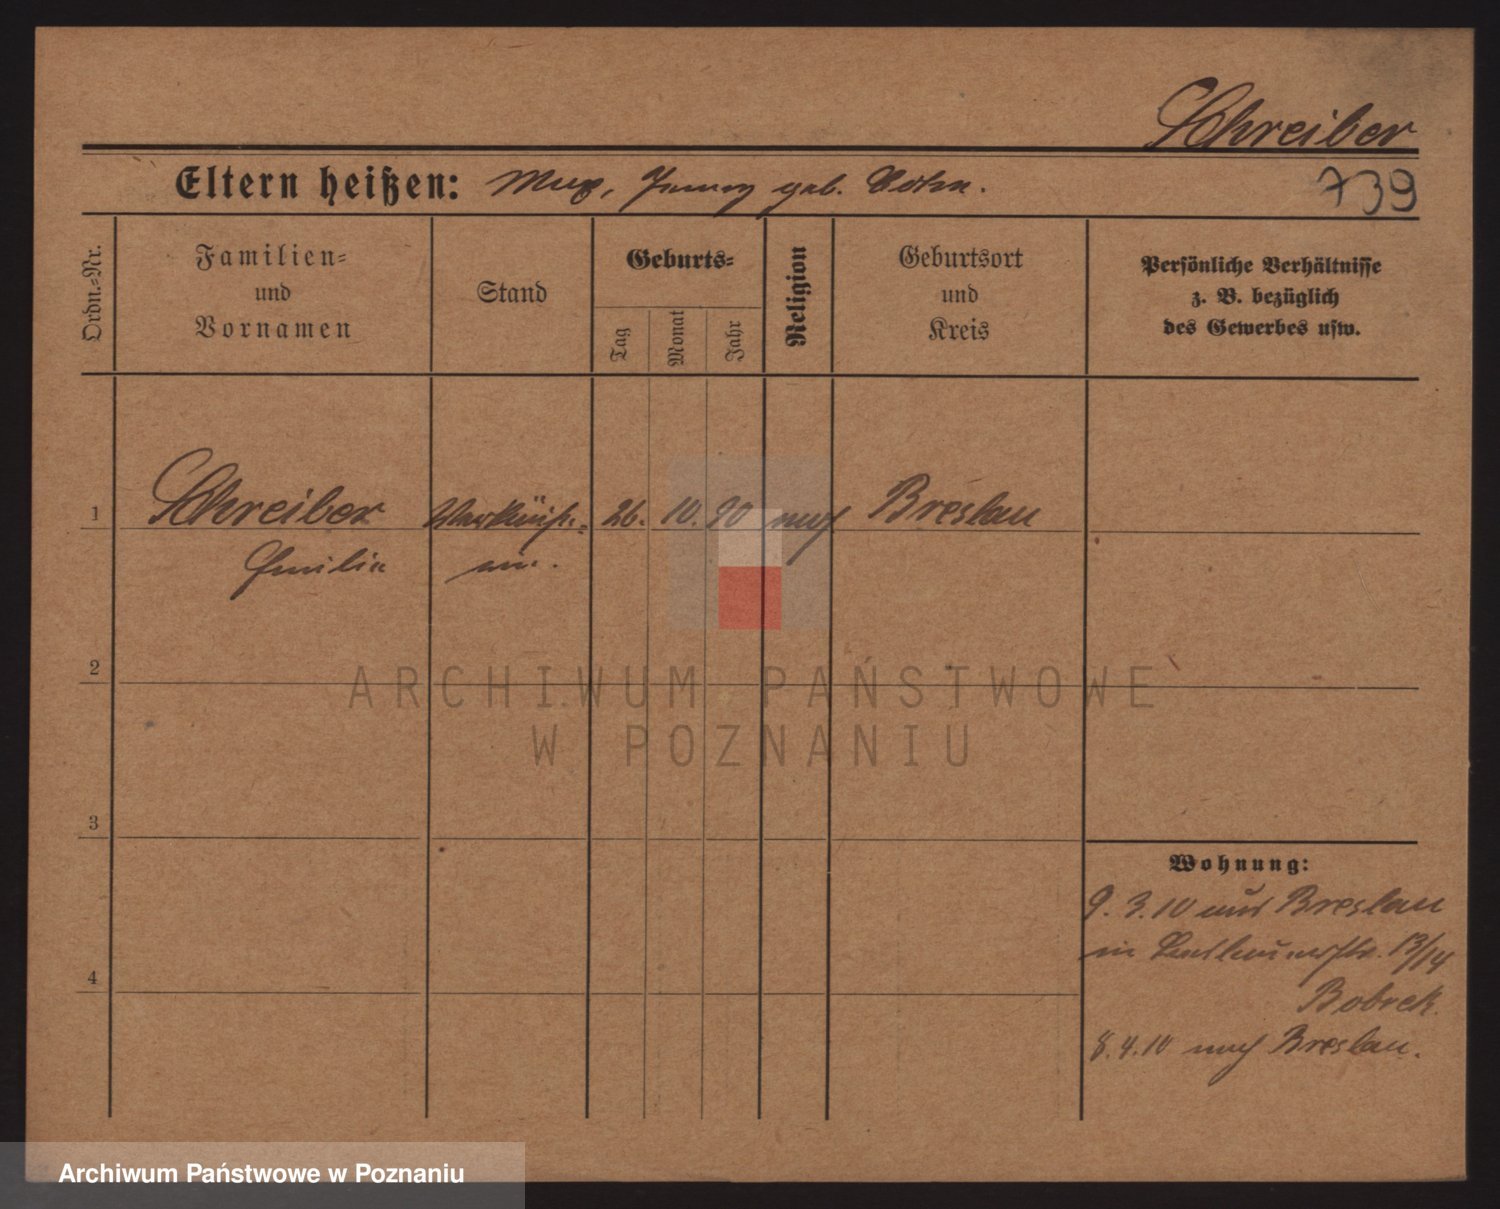 Schreiber
Eltern heißen: Max, Jenny geb. Cohn.
739
Ordn.=Nr.
Familien=
und
Vornamen
Stand
Geburts=
Tag
Monat
Jahr
Religion
Geburtsort
und
Kreis
Persönliche Verhältnisse
z. B. bezüglich
des Gewerbes usw.
1
Schreiber
Emilie
Verkäuf=
in.
26. 10. 90
Breslau
2
ARCHIWUM PAŃSTWOWE
W POZNANIU
3
4
Wohnung:
9. 3. 10 aus Breslau
in 13/14
Bobrek.
8. 4. 10 nach Breslau.
Archiwum Państwowe w Poznaniu